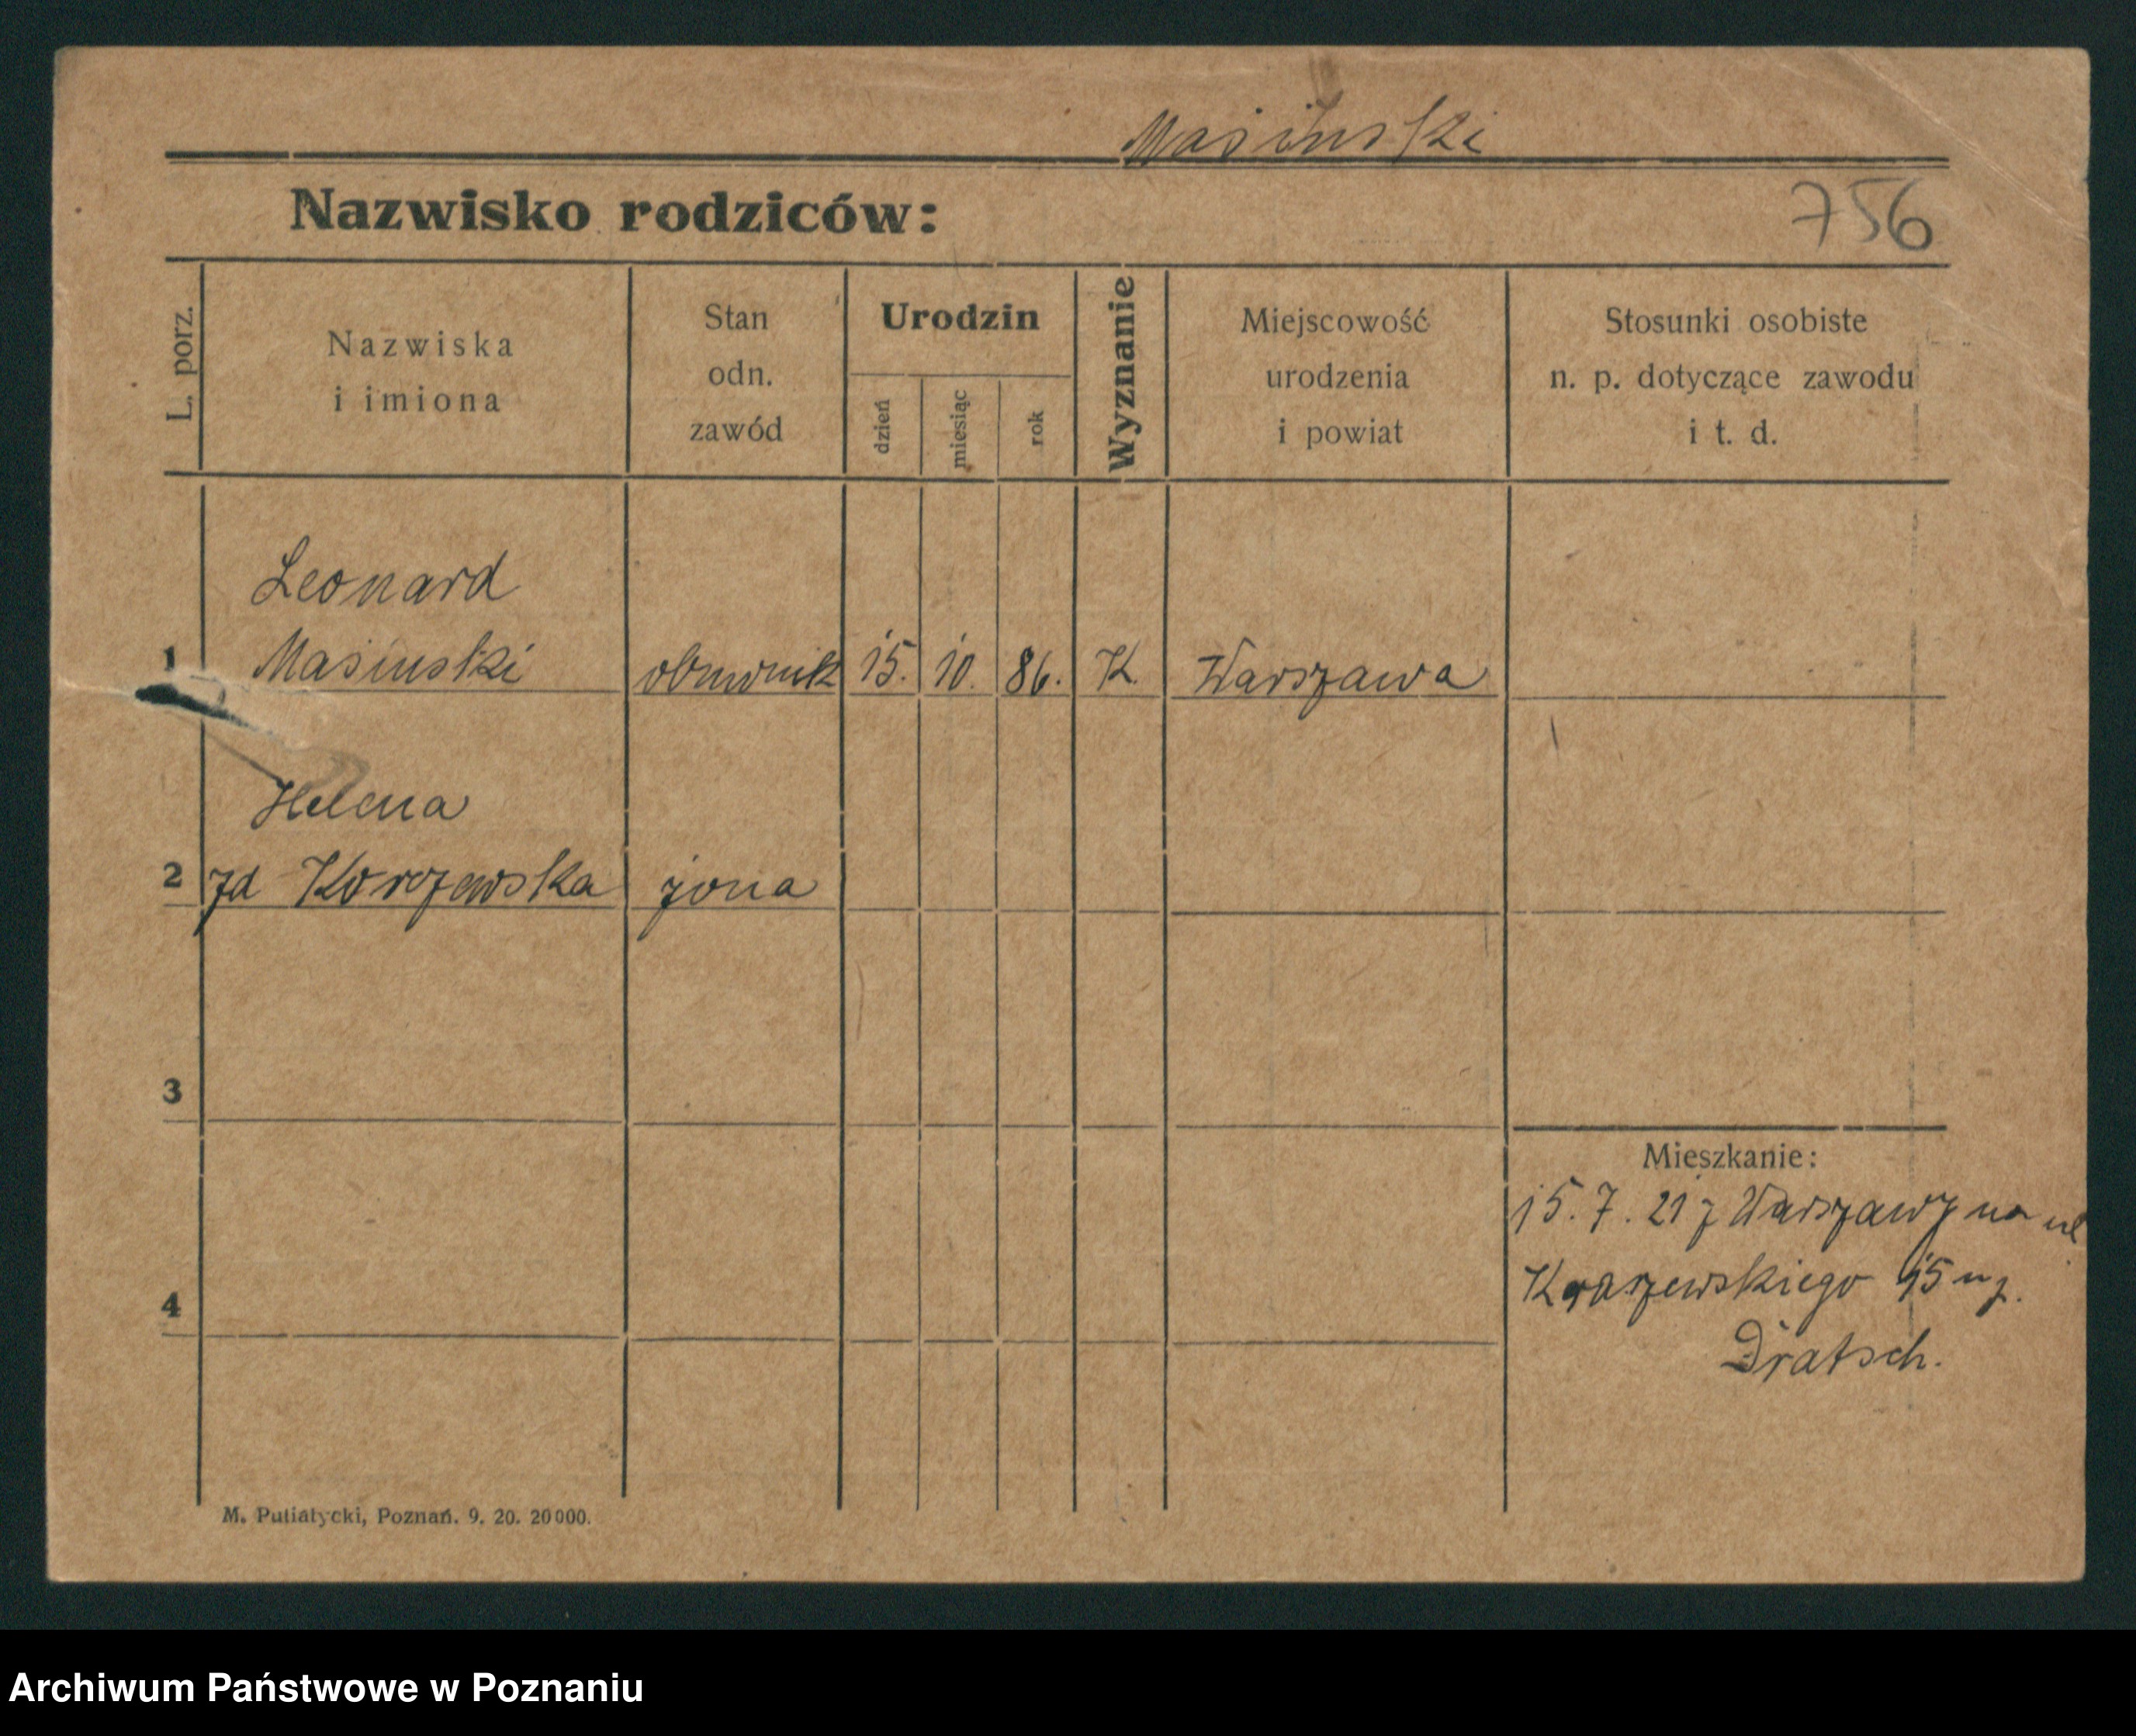 Masinski
Nazwisko rodziców:
756
L. porz.
Nazwiska
i imiona
Stan
odn.
zawód
Urodzin
dzień
miesiąc
rok
Wyznanie
Miejscowość
urodzenia
i powiat
Stosunki osobiste
n. p. dotyczące zawodu
i t. d.
Leonard
1 Masinski obuwnik 15. 10. 86. K. Warszawa
Helena
2 zd Korzewska zona
3
Mieszkanie:
15. 7. 21 z Warszawy na ul
Kraszewskiego 15 u p.
4
Dratsch.
M. Putiatycki, Poznań. 9. 20. 20000.
Archiwum Państwowe w Poznaniu